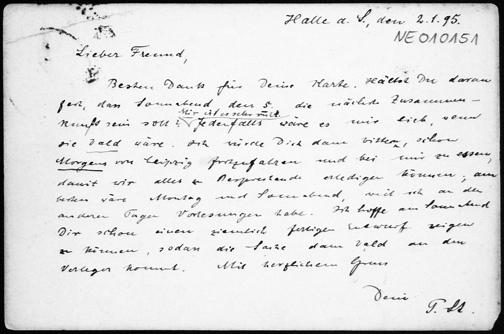 Halle a. S., den 2.1.95.
NE010151
Lieber Freund,
Besten Dank für Deine Karte. Hältst Du daran
fest, dass Sonnabend den 5. die nächste Zusammen-
kunft sein soll? Mir ist es sehr recht. Jedenfalls wäre es mir lieb, wenn
sie bald wäre. Ich würde Dich dann bitten, schon
Morgens von Leipzig fortzufahren und bei mir zu essen,
damit wir alles zu Besprechende erledigen können; am
besten wäre Montag und Sonnabend, weil ich an den
anderen Tagen Vorlesungen habe. Ich hoffe am Sonnabend
Dir schon einen ziemlich fertigen Entwurf zeigen
zu können, sodass die Sache dann bald an den
Verleger kommt. Mit herzlichem Gruss
Dein